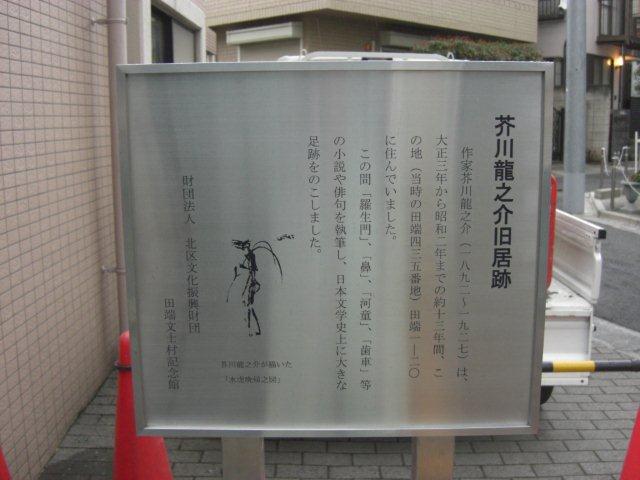 芥川龍之介旧居跡
作家芥川龍之介(一八九二~一九二七)は、
大正三年から昭和二年までの約十三年間、こ
の地(当時の田端四三五番地)田端一―二〇
に住んでいました。
この間「羅生門」、「鼻」、「河童」、「歯車」等
の小説や俳句を執筆し、日本文学史上に大きな
足跡をのこしました。
芥川龍之介が描いた
「水虎晩帰之図」
財団法人 北区文化振興財団
田端文士村記念館